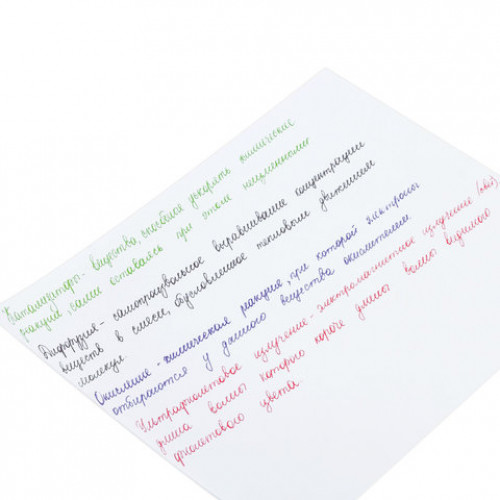 Катализаторы - вещества, способные ускорять химические
реакции, сами оставаясь при этом неизменными
Диффузия - самопроизвольное выравнивание концентрации
веществ в смеси, обусловленное тепловым движением
молекул.
Окисление - химическая реакция, при которой электроны
отбираются у данного вещества окислителем
Ультрафиолетовое излучение - электромагнитное излучение (свет),
длина волны которого короче длины волны видимого
фиолетового цвета.